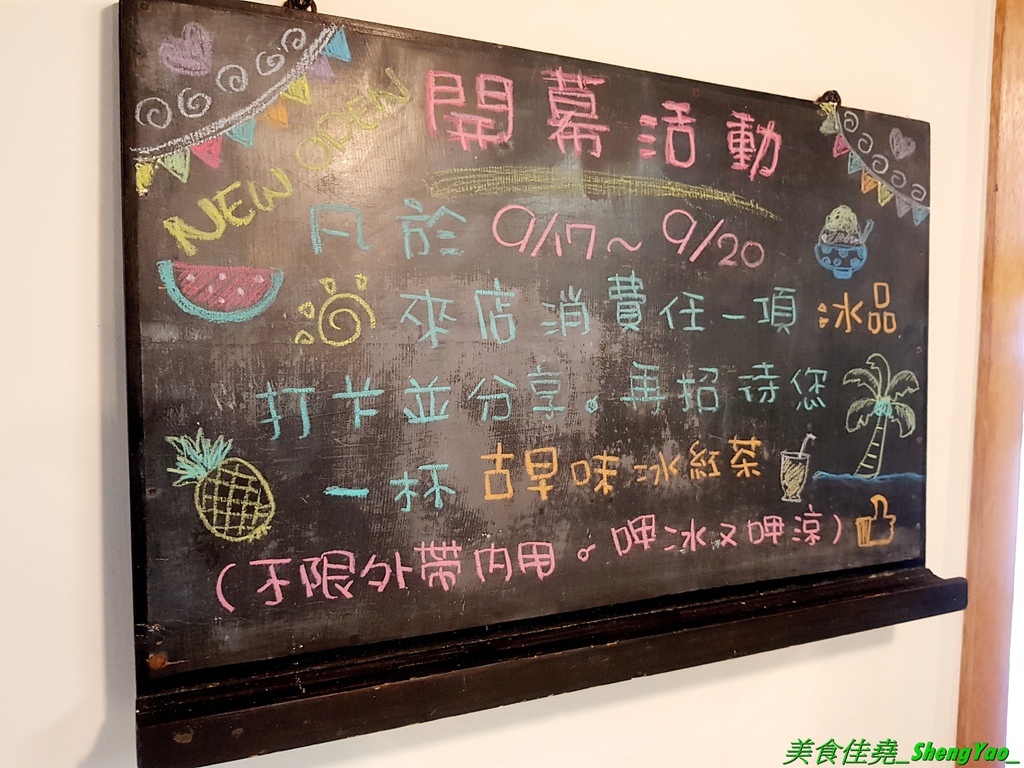 開幕活動
NEW OPEN
凡於 9/17~9/20
來店消費任一項 冰品
打卡並分享。再招待您
一杯 古早味冰紅茶
(不限外帶內用。呷冰又呷涼)
美食佳堯_ShengYao_